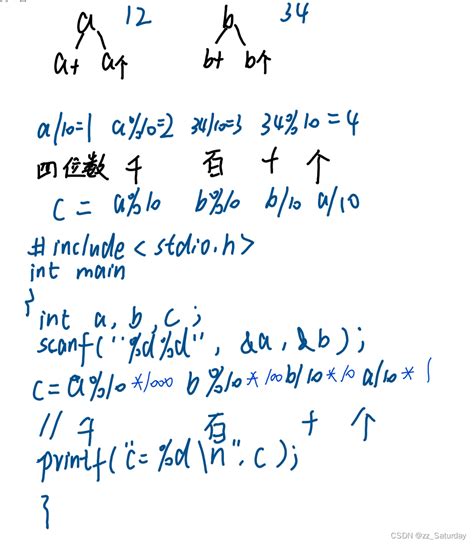 a 12 b 34
a十 a个 b十 b个
a/10=1 a%10=2 34/10=3 34%10=4
四位数 千 百 十 个
C = a%10 b%10 b/10 a/10
#include<stdio.h>
int main
{
int a,b,c;
scanf("%d%d", &a,&b);
C=a%10*1000 b%10*100b/10*10 a/10*1
// 千 百 十 个
printf("c=%d\n".c);
}
CSDN @zz_Saturday